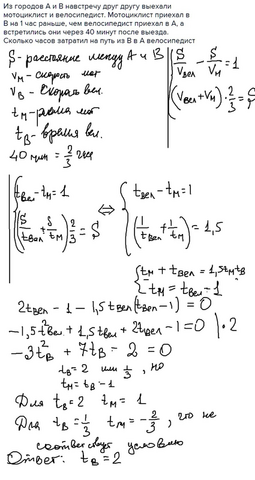 Из городов А и В навстречу друг другу выехали
мотоциклист и велосипедист. Мотоциклист приехал в
В на 1 час раньше, чем велосипедист приехал в А, а
встретились они через 40 минут после выезда.
Сколько часов затратил на путь из В в А велосипедист
S - расстояние между А и В
vм - скорость мот
vв - скорость вел.
tм - время мот
tв - время вел.
40 мин = 2/3 часа
S/vвел - S/vм = 1
(vвел + vм) · 2/3 = S
tвел - tм = 1
(S/tвел + S/tм) 2/3 = S
⇔
tвел - tм = 1
(1/tвел + 1/tм) = 1,5
tм + tвел = 1,5tмtв
tм = tвел - 1
2tвел - 1 - 1,5tвел(tвел - 1) = 0
-1,5t²вел + 1,5tвел + 2tвел - 1 = 0 | · 2
-3t²в + 7tв - 2 = 0
tв = 2 или 1/3, но
tм = tв - 1
Для tв = 2 tм = 1
Для tв = 1/3 tм = -2/3, что не
соответствует условию
Ответ: tв = 2